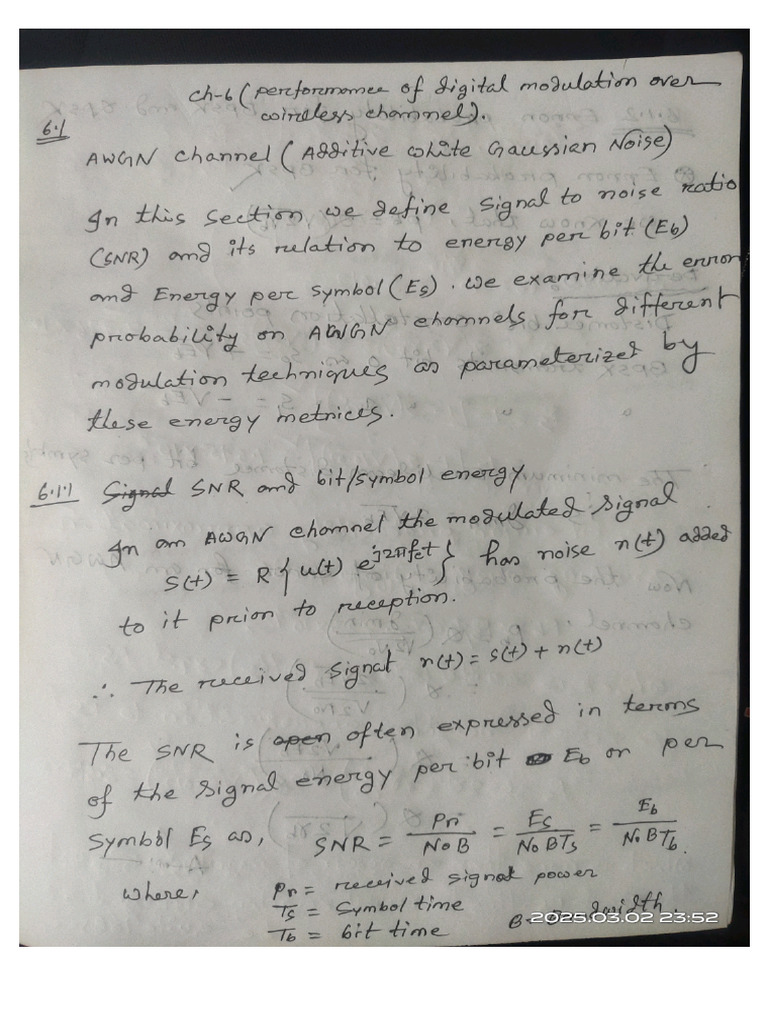 ch-6 (performance of digital modulation over
wireless channel).
6.1
AWGN channel (Additive White Gaussian Noise)
In this section we define signal to noise ratio
(SNR) and its relation to energy per bit (Eb)
and Energy per symbol (Es). We examine the error
probability on AWGN channels for different
modulation techniques as parameterized by
these energy metrices.
6.1.1 Signal SNR and bit/symbol energy
In an AWGN channel the modulated signal
s(t) = R{u(t) e^{j2πfct}} has noise n(t) added
to it prior to reception.
∴ The received signal r(t) = s(t) + n(t)
The SNR is open often expressed in terms
of the signal energy per bit Eb or per
symbol Es as, SNR = Pr/N0B = Es/N0BTs = Eb/N0BTb.
where, Pr = received signal power
Ts = Symbol time
Tb = bit time
2025.03.02 23:52